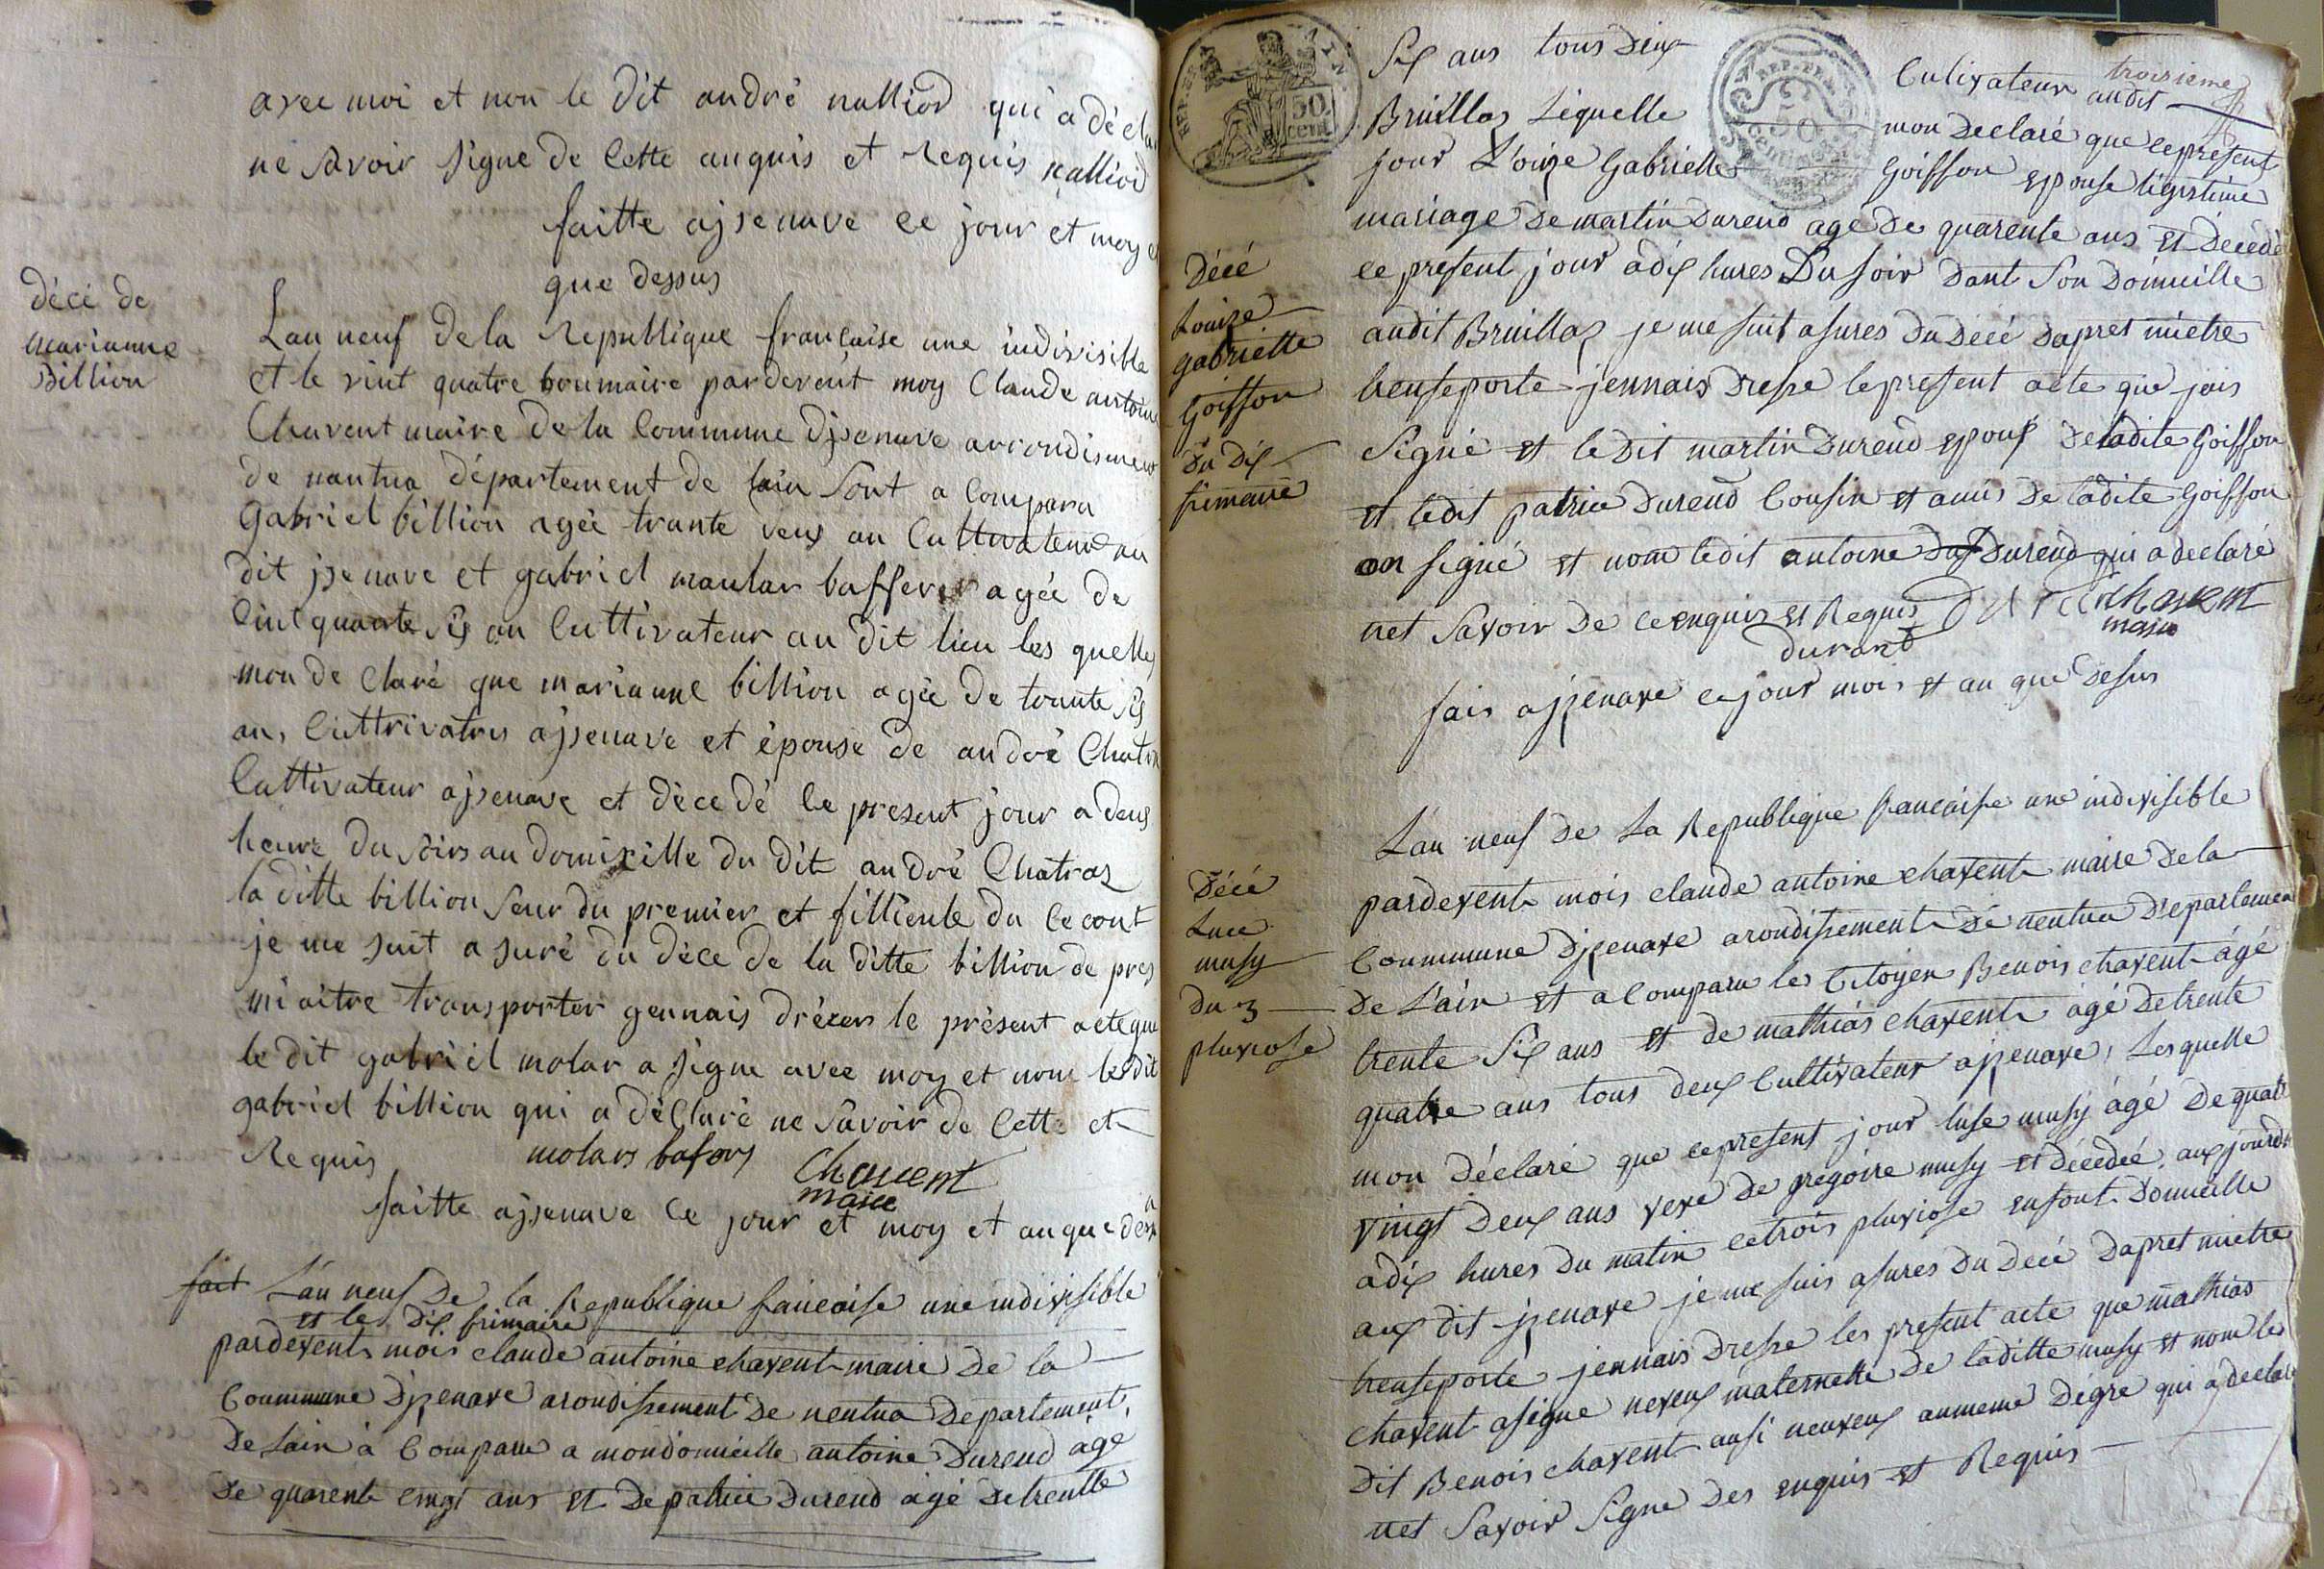 avec moi et non le dit andré nalliod qui a décla
ne savoir signe de cette anquis et requis nalliod
faitte ajsenave ce jour et moy
que dessus
décé de
marianne
Billion
Lan neuf de la Republique francaise une indivisille
et le vint quatre broumaire pardevent moy Claude antoine
Chavent maire de la Commune disenave arrondisment
de nantua département de lain sont a Compara
Gabriel billion agée trante deux an Cultivateur au
dit jsenave et gabriel moular baffert agée de
Cinlquante six an Culttivateur au dit lieu les quelles
mon de Claré que marianne billion agée de trante six
an, Culttrivatris ajsenave et épouse de andré Chatra
Cultivateur ajsenave et décedé le present jour a deux
heure du soirs au domixille du dit andré Chatraz
la ditte billion seur du premier et fillieule du Cecont
je me suit a suré du déce de la ditte billion de pres
mi aitre transporter gennais drécer le présent acte que
le dit gabriel molar a signe avec moy et nom le dit
gabriel billion qui a déClaré ne savoir de Cette et
Requis molars bafer
Chavent
maire
faitte ajsenave Ce jour et moy et an que desu
fait Lan neuf De la Republique francoise une indivisible
et le dix frimaire
pardevent mois claude antoine chavent maire De la
Coummune Djsenave arondissement de nentua Departement
De Lain à Comparu a mon domicille antoine Durend agé
De quarente cinqt ans et De patrice Durend agé de trentte
Six ans tous Deux Cultivateur audit
troisieme
50 cent.
REP. FRA.
50 centimes
Bruillaz Lequelle mon Declaré que ce present
jour L'ouize Gabrielle Goisson epouse légistime
mariage de martin Durend agé De quarente ans et Décédé
ce present jour a dix hures Du soir Dant son Domicille
audit Bruillaz je me suit asures Du Décé dapret mietre
trenseporte jennais Dresse le present acte que jais
Signé et le Dit martin Durend epoux De ladite Goisson
et ledit patrice Durend Cousin et amis De ladite Goisson
on signé et nom ledit antoine Durend qui a declaré
net Savoir De ce enquis et Requis
Chavent
maire
durand
fais ajsenave ce jour mois et an que desus
Décé
Louize
gabrielle
Goisson
Du Dix
frimaire
Lan neuf de La Republique francaise une indivisible
pardevent mois claude antoine chavent maire De la
Coummune Djsenave arondissement De nentua Departemen
De L'ain et a Comparu les Citoyen Benois chavent âgé
trente Six ans et de mathias chavent agé De trente
quatre ans tous deux Cultivateur ajsenave, Lesquelle
mon Déclaré que ce present jour luse musy âgé De quatre
vingt Deux ans veve De gregoire musy et Décedée aux jourdh
a dix hures Du matin ce trois pluviose en sont Domicille
aux dit jsenave je me suis asures Du Décé Dapret mietre
trenseporte jennais Dresse les present acte que mathias
chavent a signe neveux maternelle De laditte musy et nom le
Dit Benois chavent ausi neuveux aumeme Degre qui a declar
net Savoir Signe Des enquis et Requis
Décé
Luce
musy
Du 3
pluviose